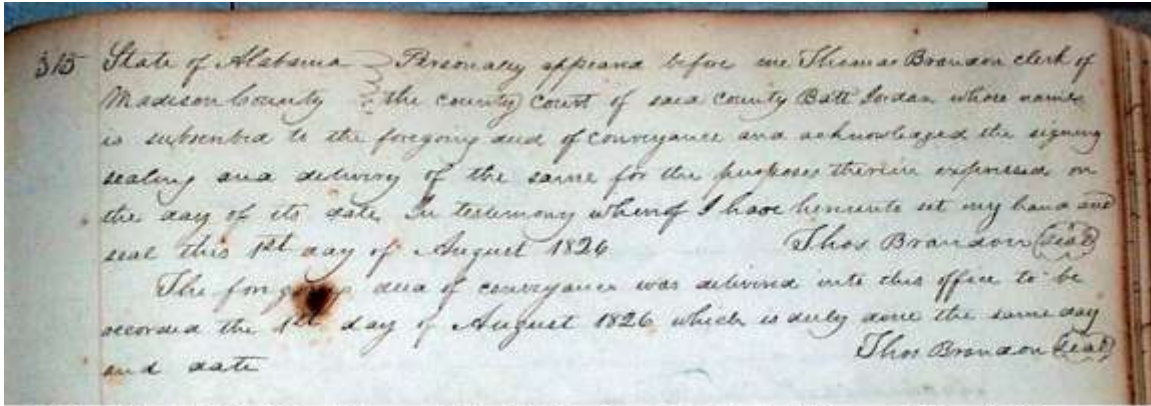 315 State of Alabama } Personally appeared before me Thomas Brandon clerk of
Madison County } the county court of said county Batt Jordan whose name
is subscribed to the foregoing deed of conveyance and acknowledged the signing
sealing and delivery of the same for the purposes therein expressed on
the day of its date In testimony whereof I have hereunto set my hand and
seal this 1st day of August 1826 Thos Brandon (seal)
The foregoing deed of conveyance was delivered into this office to be
recorded the 1st day of August 1826 which is duly done the same day
and date Thos Brandon (seal)